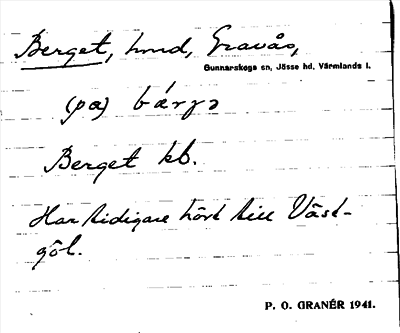 Berget, hmd, Gravås,
Gunnarskogs sn, Jösse hd, Värmlands l.
(pa) bárjə
Berget kb.
Har tidigare hört till Väst-
göl.
P. O. GRANÉR 1941.